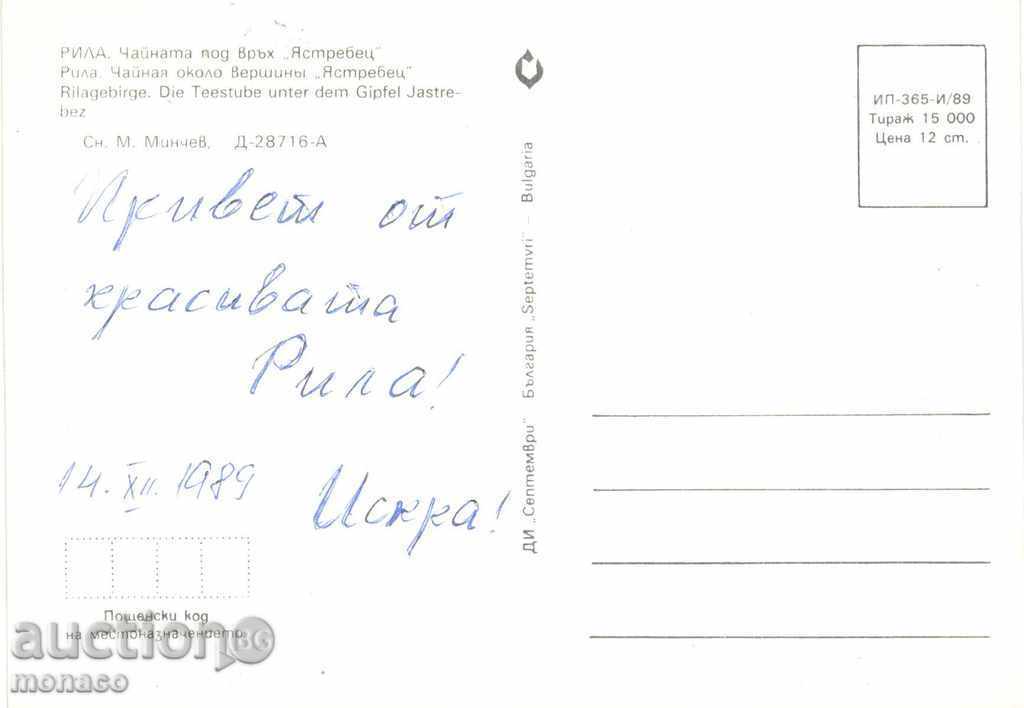 РИЛА. Чайната под връх „Ястребец"
Рила. Чайная около вершины „Ястребец"
Rilagebirge. Die Teestube unter dem Gipfel Jastre-
bez
Сн. М. Минчев. Д-28716-А
Привет от
красивата
Рила!
14. XII. 1989
Искра!
Пощенски код
на местоназначението
ДИ „Септември" България „Septemvri" – Bulgaria
ИП-365-И/89
Тираж 15 000
Цена 12 ст.
auction.BG
monaco